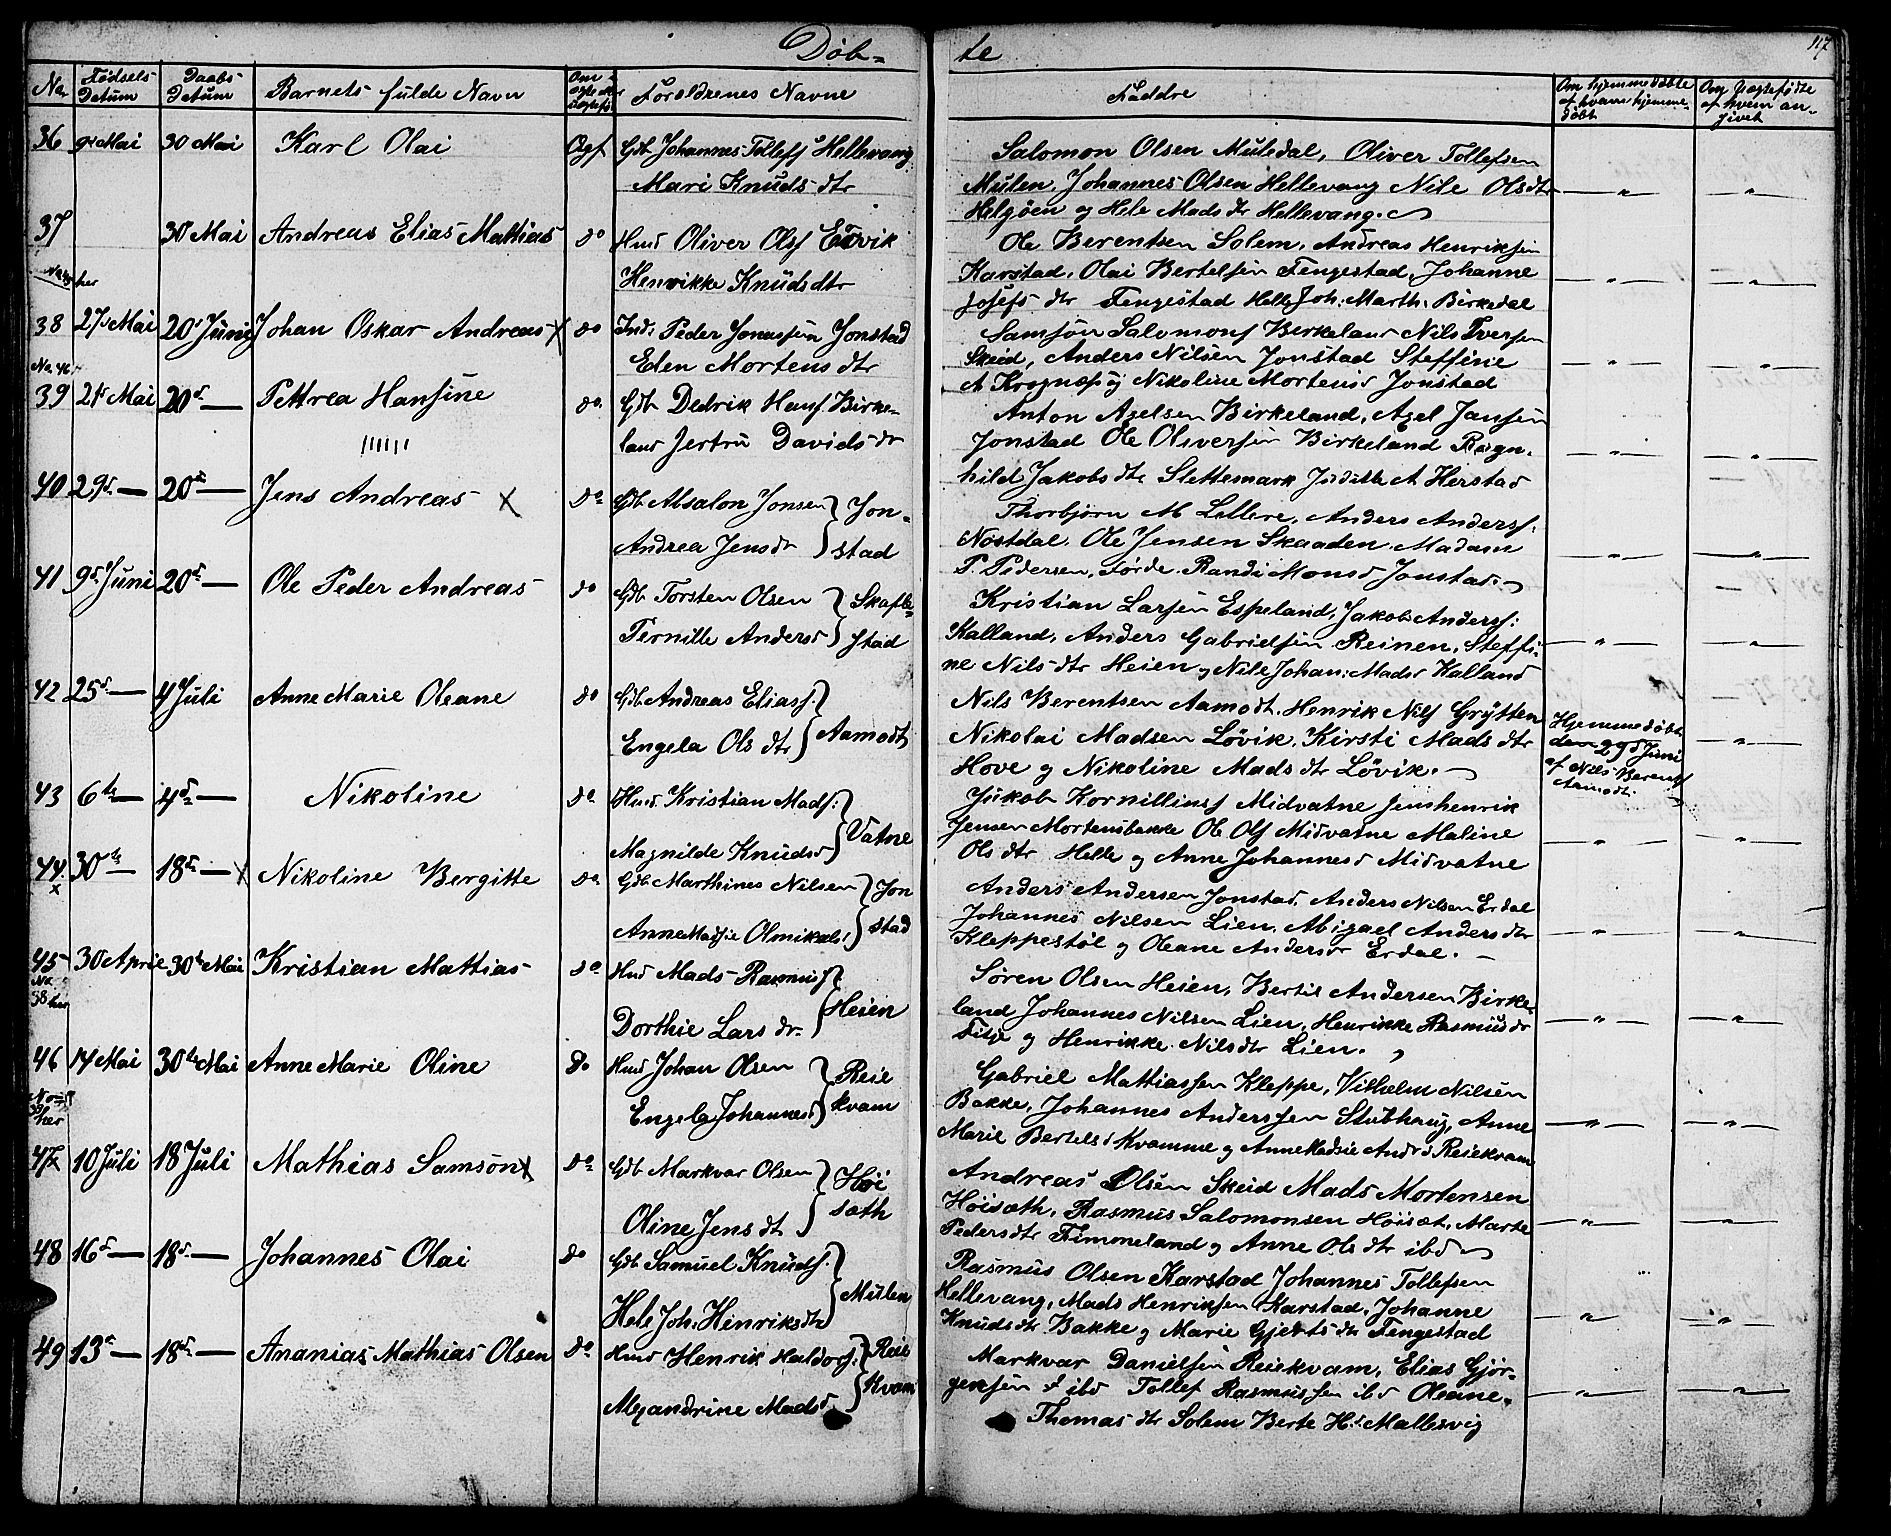 Døb-te
117
No. Fødsels Datum Daabs-Datum Barnets fulde Navn Om Forældrenes Navne Faddre Om hjemmedøbte af hvem hjemmedøbt Om Uægtefødte af hvem angivet
36 Mai 30 Mai Karl Olai Ogf Gdb Johannes Tollefs Hellevang
Mari Knuds dtr
Salomon Olsen Muledal, Oliver Tollefsen
Mulen, Johannes Olsen Hellevang Nile Olsdtr
Helgøen og Hele Mads dtr Hellevang.
37 30 Mai Andreas Elias Mathias do Hmd Oliver Ols
Henrikke Knudsdtr
Ole Berentsen Solem, Andreas Henriksen
Karstad, Olai Bertelsen Fengestad, Johanne
Josefs dtr Fengestad Helle Joh: Marth: Birkedal
38 27 Mai 20 Juni Johan Oskar Andreas X do Ind: Peder Jonassen Jonstad
Elen Mortens dtr
Samson Salomons Berkeland Nils Iversen
Skeid, Anders Nilsen Jonstad Steffine
A Krognæs og Nikoline Mortensd Jonstad
No. 46
39 21 Mai 20d — Pettrea Hansine do. Gdb Dedrik Hans. Birke-
land Jertru Davids dr
Anton Axelsen Birkeland, Axel Jansen
Jonstad Ole Oliversen Birkeland Ragn-
hild Jakobs dtr Slettemark Judithe A Herstad
40 29d — 20d — Jens Andreas X do Gdb Absalon Jonsen } Jon-
Andrea Jensdr stad
Thorbjørn M Lillere, Anders Anders:
Nøstdal. Ole Jensen Skaaden. Madam
P. Pedersen, Førde. Randi Monsd Jonstad.
41 9d Juni 20d — Ole Peder Andreas do Gdb Torsten Olsen } Skafle-
Pernille Andersd stad
Kristian Larsen Espeland, Jakob Anders:
Kalland, Anders Gabrielsen Reinen, Steffi-
ne Nils dtr Heien og Nile Johan: Madsd Kalland
42 25d — 4 Juli Anne Marie Oleane do Gdb Andreas Elias.
Engela Ols dtr } Aamodt
Nils Berentsen Aamodt. Henrik Nils Grytten
Nikolai Madsen Løvik. Kirsti Mads dtr
Hove og Nikoline Mads dtr Løvik. —
Hjemmedøbt
den 29d Juni
af Nils Berents
Aamodt.
43 6te — 4d — Nikoline do Hmd. Kristian Mads:
Magnilde Knudsd } Vatne
Jakob Kornillius Midvatne Jenshenrik
Jensen Mortensbakke Ole Ols Midvatne Maline
Ols dtr Helle og Anne Johannesd Midvatne
44 30te — 18d — X Nikoline Bergitte do Gdb Marthines Nilsen } Jon
x Anne Madsie Olmikals stad
Anders Andersen Jonstad, Anders Nilsen Erdal
Johannes Nilsen Lien, Abigael Anders dtr
Kleppestøl og Oleane Andersdr Erdal. —
45 30 April 30te Mai Kristian Mattias do Hmd Mads Rasmus
No 38 her Dorthie Lars dr. } Heien
Søren Olsen Heien, Bertil Andersen Birke-
land Johannes Nilsen Lien, Henrikke Rasmusdr
Fitje og Henrikke Nilsdtr Lien.
46 14 Mai 30te Mai Anne Marie Oline do Hmd Johan Olsen } Reie
Engela Johannesd kvam
her
Gabriel Mattiassen Kleppe, Vilhelm Nilsen
Bakke, Johannes Anderssen Stubhaug, Anne
Marie Bertelsd Kvamme og Anne Madsie Andrd Reiekvam
47 10 Juli 18 Juli Mathias Samson X do Gdb Markvar Olsen } Høi
Oline Jens dt sæth
Andreas Olsen Skeid Mads Mortensen
Høisæth, Rasmus Salomonsen Høisæt, Marte
Pedersdtr Fimmeland og Anne Ols dtr ibd
48 16d — 18d — Johannes Olai do Gdb Samuel Knuds.
Hele Joh. Henriksdtr } Mulen
Rasmus Olsen Karstad Johannes Tollefsen
Hellevang, Mads Henriksen Karstad, Johanne
Knuds dtr Bakke og Marie Gjerts dtr Fengestad
49 13d — 18d — Ananias Mathias Olsen do Hmd Henrik Haldors. } Reie
Alexandrine Madsd kvam
Markvar Danielsen Reiekvam, Elias Gjør-
gensen ibd Tollef Rasmussen ibd Oleane
Thomas dtr Solem Berte H. Mallesvig